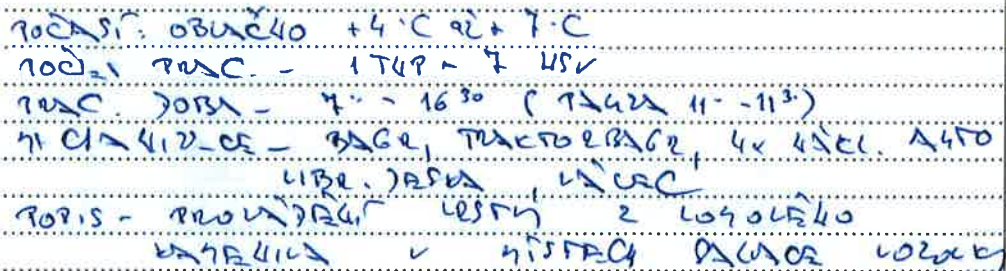 POČASÍ: OBLAČNO +4°C až +7°C
POČ. PRAC. - 1 THP - 7
PRAC. DOBA - 7⁰⁰ - 16³⁰ (PAUZA 11⁰⁰ - 11³⁰)
MECHANIZACE - BAGR, TRAKTORBAGR, 4x NÁKL. AUTO
VIBR. DESKA, VÁLEC
POPIS - PROVÁDĚNÍ VRSTVY Z LOMOVÉHO
KAMENIVA V MÍSTECH